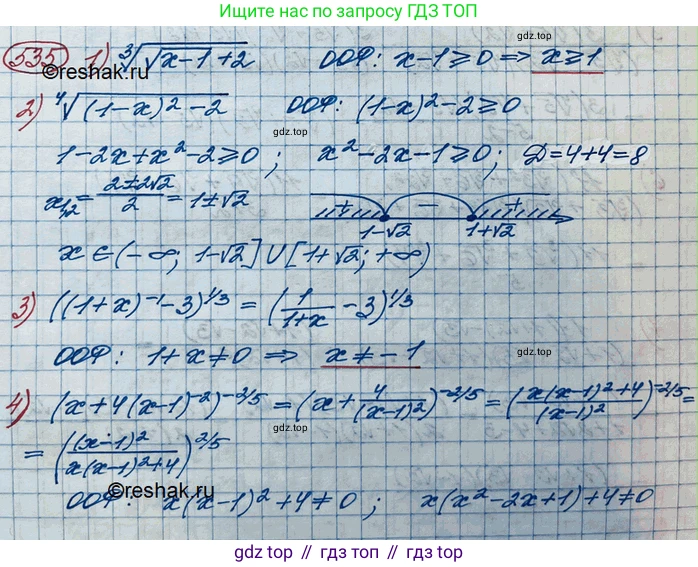 Ищите нас по запросу ГДЗ ТОП
535 1) ∛(√(x-1) +2) ООФ: x-1≥0 ⇒ x≥1
©reshak.ru
2) ⁴√((1-x)² -2) ООФ: (1-x)²-2≥0
gdz.top
1-2x+x²-2≥0; x²-2x-1≥0; D=4+4=8
x₁,₂ = (2±2√2)/2 = 1±√2 + − +
gdz.top
1-√2 1+√2
x∈(-∞; 1-√2]∪[1+√2; +∞)
gdz.top
3) ((1+x)⁻¹-3)^1/3 = (1/(1+x) -3)^1/3
ООФ: 1+x≠0 ⇒ x≠-1
gdz.top
4) (x+4(x-1)⁻²)^-2/5 = (x+ 4/(x-1)²)^-2/5 = ((x(x-1)²+4)/(x-1)²)^-2/5 =
gdz.top
= ((x-1)²/(x(x-1)²+4))^2/5
©reshak.ru
ООФ: x(x-1)²+4≠0; x(x²-2x+1)+4≠0
gdz.top
gdz top // гдз топ // gdz.top